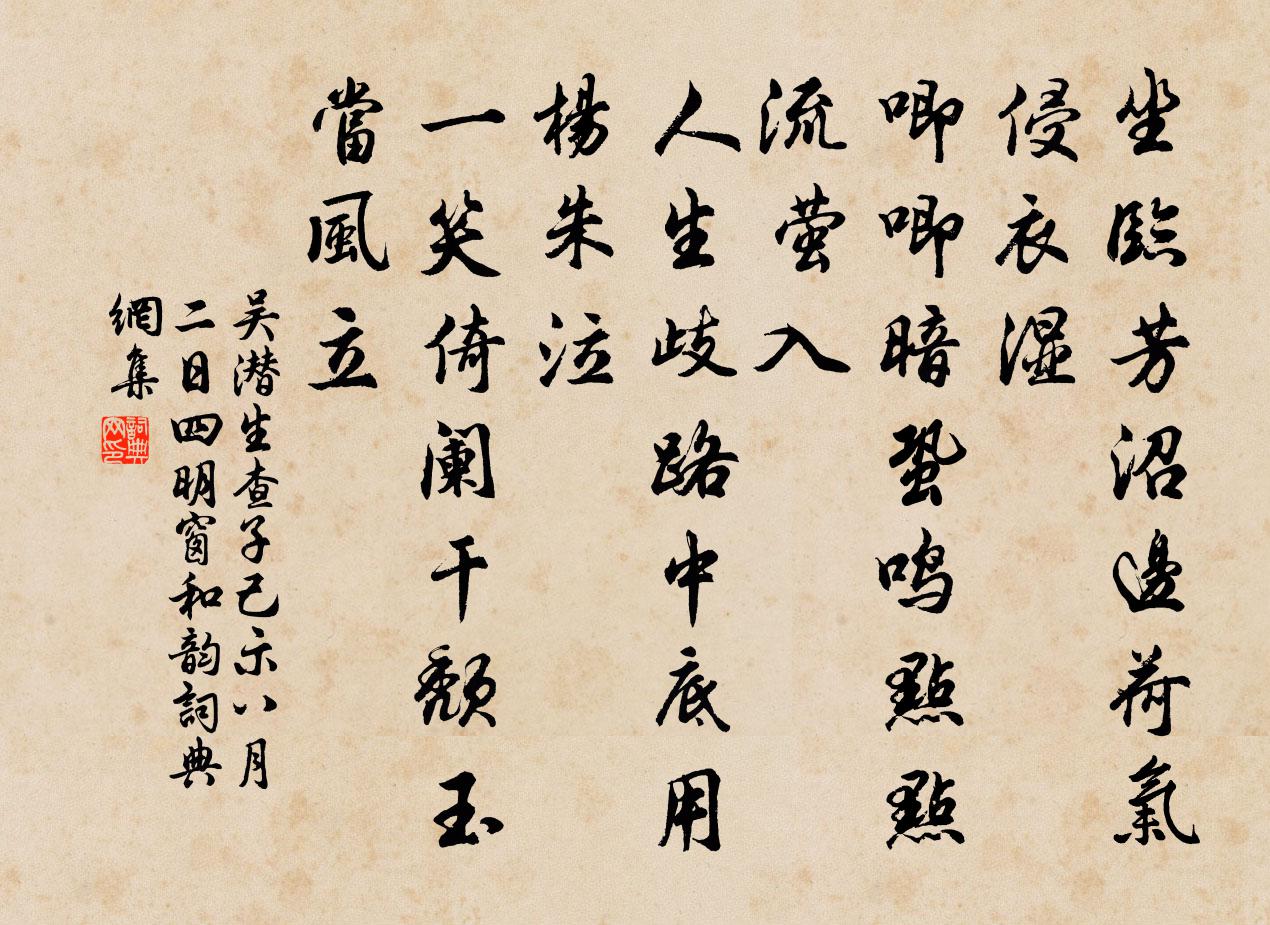 坐臨芳沼邊荷氣
侵衣湿
唧唧暗蛩鳴點點
流萤入
人生歧路中底用
楊朱泣
一笑倚闌干頽玉
當風立
吴潜生查子己示八月
二日四明窗和韵詞典
網集
詞典
网印